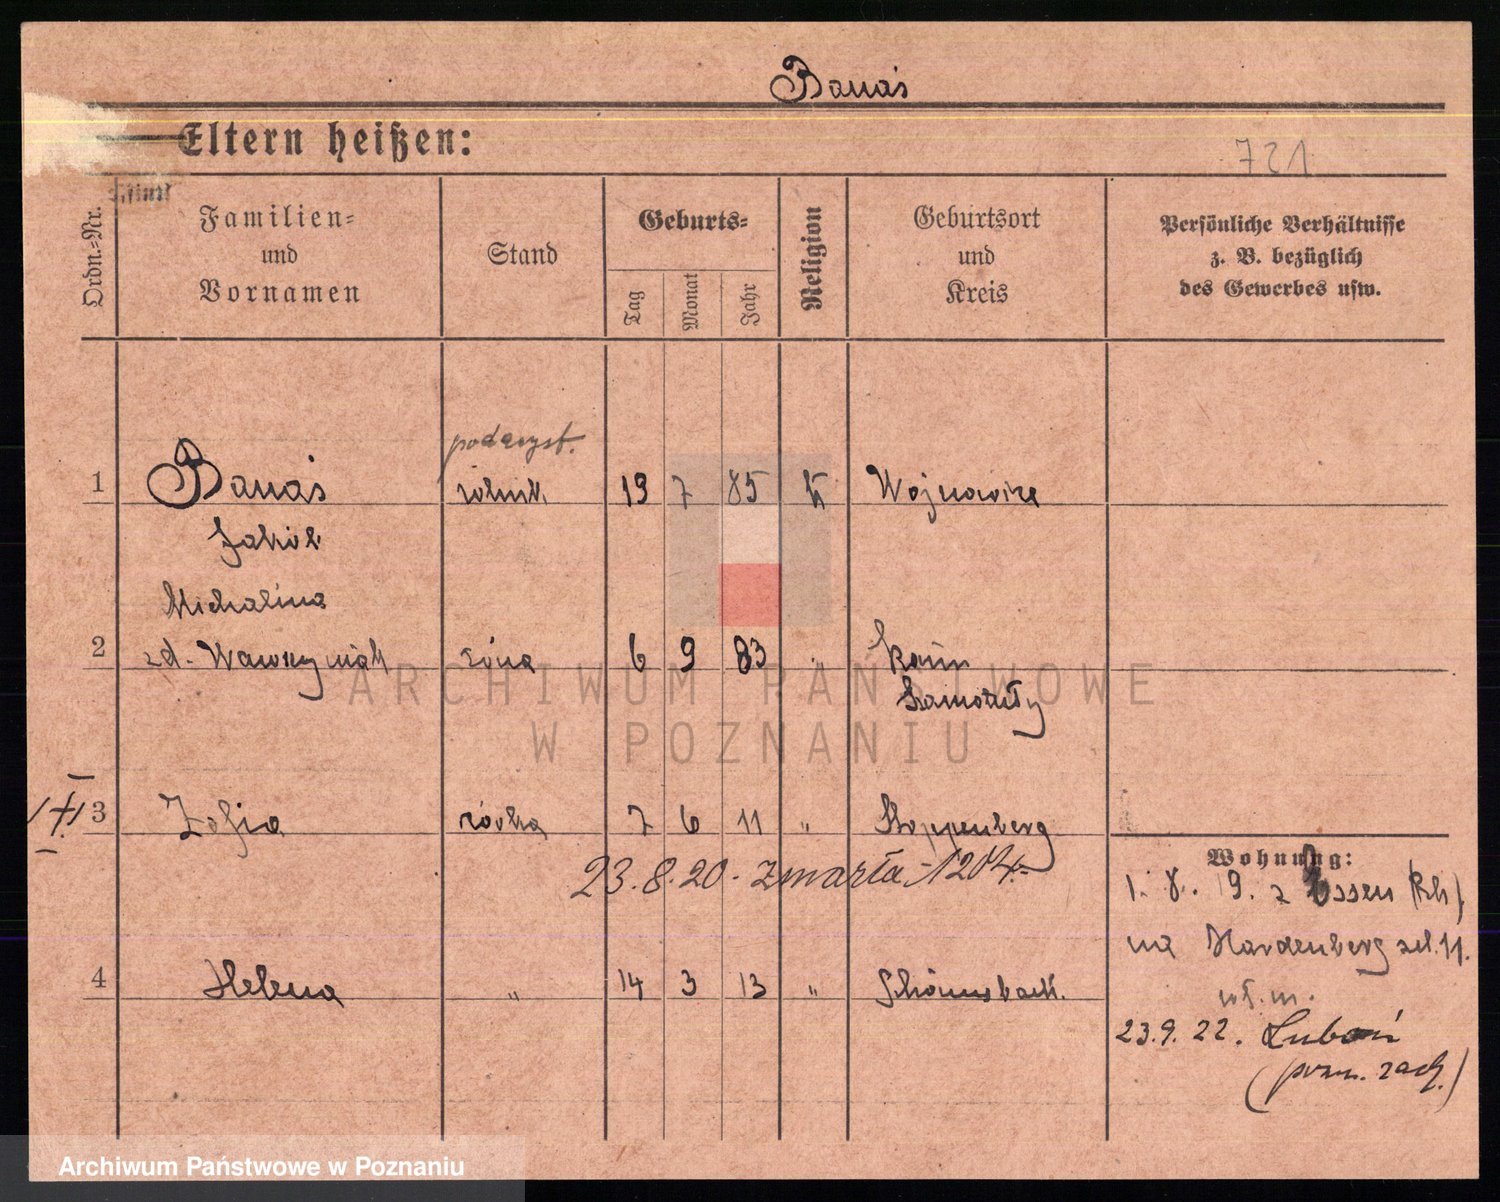 Banaś
Eltern heißen:
721
Ordn.-Nr.
Familien- und Vornamen
Stand
Geburts-
Tag
Monat
Jahr
Religion
Geburtsort und Kreis
Persönliche Verhältnisse z. B. bezüglich des Gewerbes usw.
podczyst.
1 Banaś rolnik 19 7 85 K Wojnowice
Jakób
Michalina
2 zd. Wawrzyniak żona 6 9 83 Kazm
Szamotuły
3 Zofia córka 7 6 11 " Stoppenberg
23.8.20. zmarła 1204.
Wohnung:
1. 8. 19. z Essen (Rh)
na Hardenberg
4 Helena " 14 3 13 " Schonnebeck.
wł. m.
23.9.22. Luboń
(pozn. zach.)
ARCHIWUM PAŃSTWOWE
W POZNANIU
Archiwum Państwowe w Poznaniu